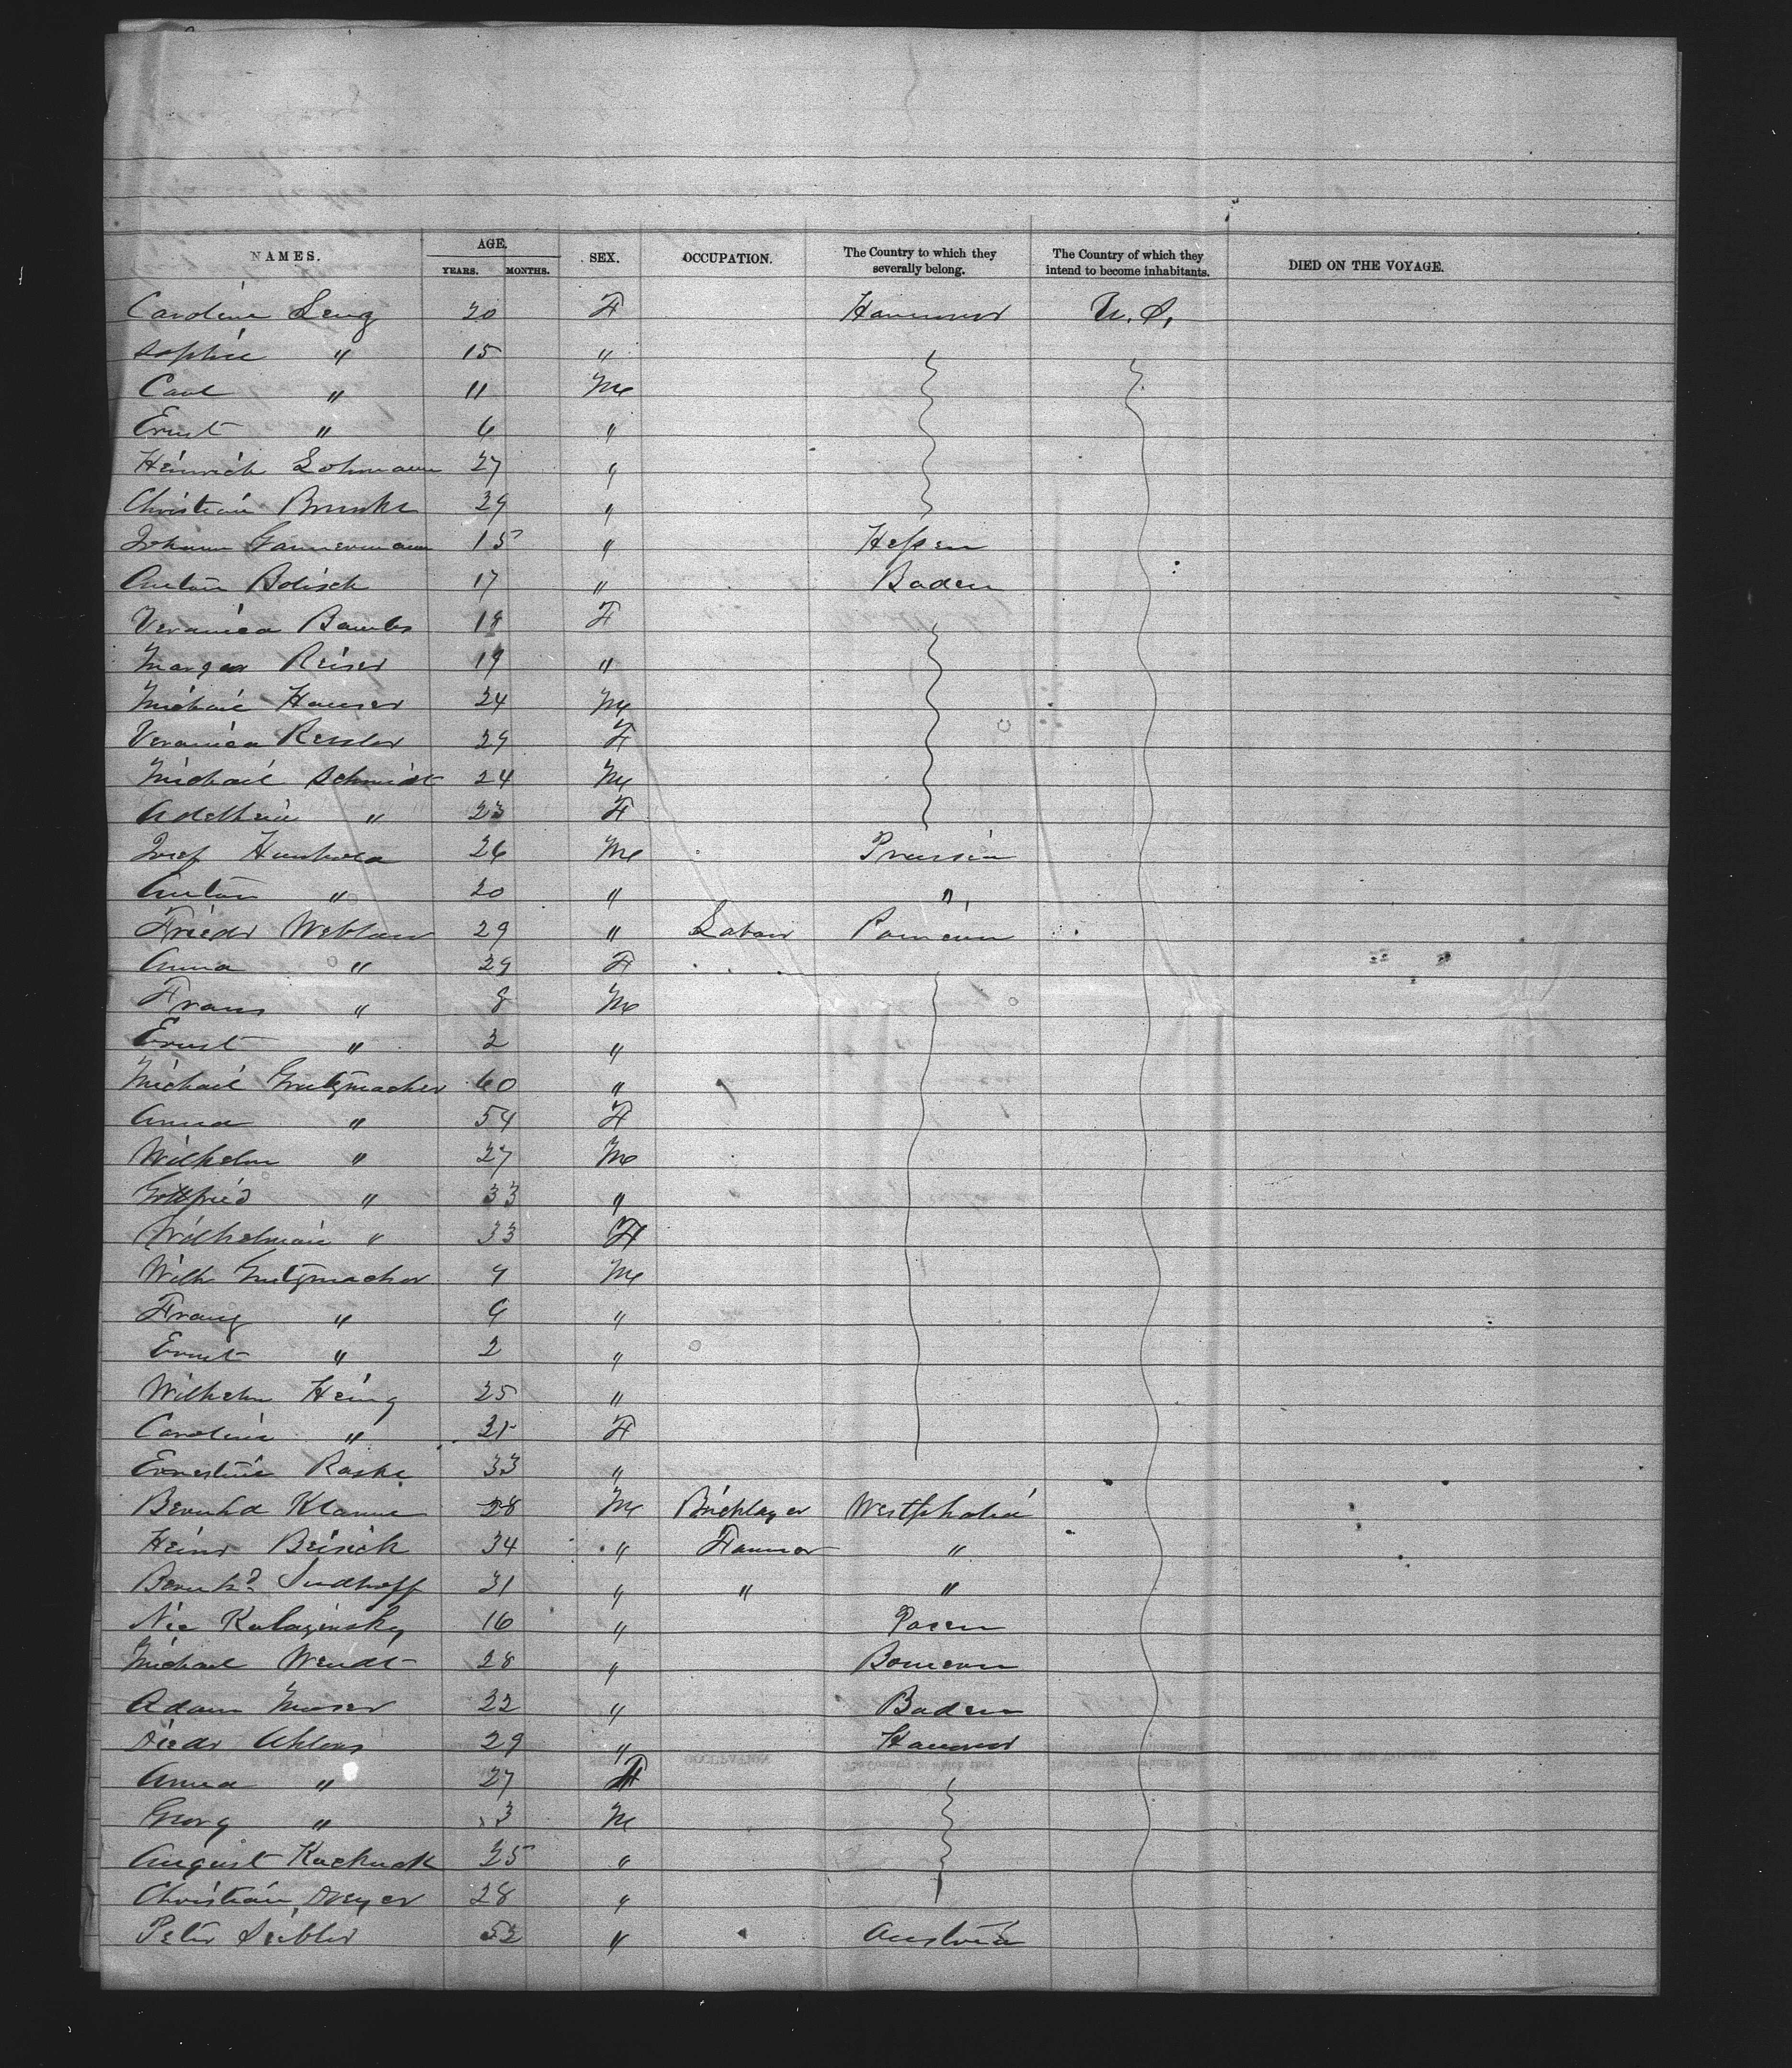 NAMES. AGE. YEARS. MONTHS. SEX. OCCUPATION. The Country to which they severally belong. The Country of which they intend to become inhabitants. DIED ON THE VOYAGE.
Caroline Leng 20 F Hannover U.S.
Sophie " 15 "
Carl " 11 M
Ernst " 6 "
Heinrich Lohmann 27 "
Christian Brunke 29 "
Johann Gannermann 15 " Hessen
Anton Bolisch 17 " Baden
Veronica Bambs 18 F
Margar Reiser 19 "
Michael Hauser 24 M
Veronica Kessler 29 F
Michael Schmidt 24 M
Adelheid " 23 F
Josef 26 M Prussia
Anton " 20 " "
Friedr 29 " Labour Pomern
Anna " 29 F
Frans " 8 M
Ernst " 2 "
Michael Grutzmacher 60 "
Anna " 54 F
Wilhelm " 27 M
Gottfried " 33 "
Wilhelmine " 33 F
Wilh Grutzmacher 9 M
Franz " "
Ernst " 2 "
Wilhelm Heinz 25 "
Caroline " F
Ernestine Raske 33 "
Bernhd Klamm 28 M Bricklayer Westphalia
Heinr Beisick 34 " Farmer "
Bernhd Sudhoff 31 " " "
Nic 16 " Posen
Michael Wendt 28 " Bomern
Adam Moser 22 " Baden
Diedr Ahlers 29 " Hannover
Anna " 27 F
Georg " 3 M
August Kuckuck 25 "
Christian Dreyer 28 "
Peter 52 " Austria